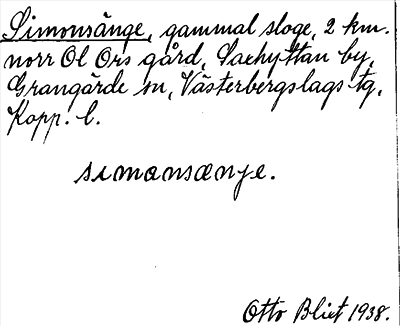 Simonsänge, gammal sloge, 2 km.
norr Ol Ors gård, Saxhyttan by,
Grangärde sn, Västerbergslags tg,
Kopp. l.
sımansænje.
Otto Blixt 1938.